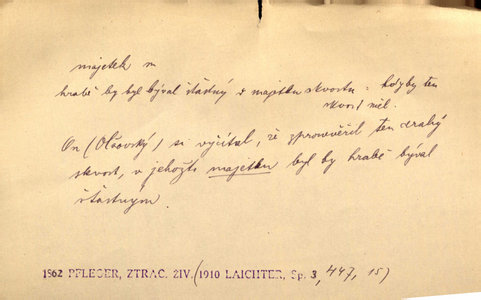 majetek m
hrabě by byl býval šťastný v majetku skvostu = kdyby ten
skvost měl.
On (Olšovský) si vyčítal, že zpronevěřil ten drahý
skvost, v jehožto majetku byl by hrabě býval
šťastným.
1862 PFLEGER, ZTRAC. ŽIV. (1910 LAICHTER, Sp. 3, 447, 15)